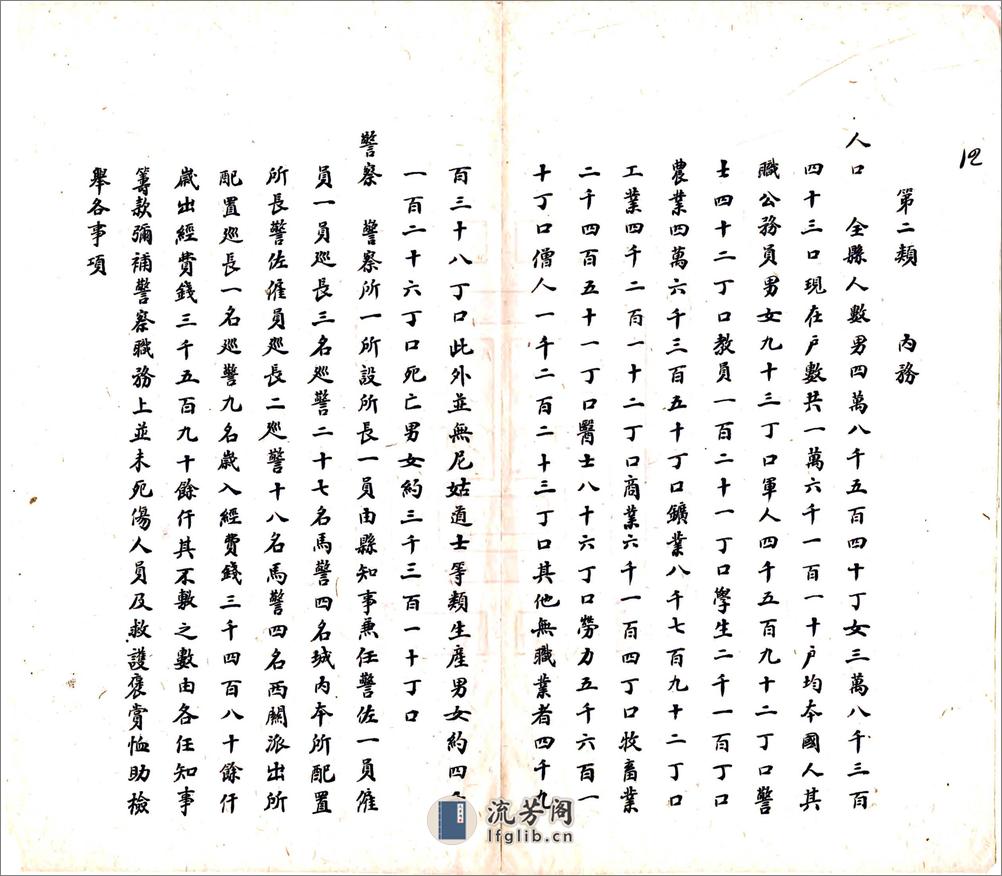 12
第二類　內務
人口　全縣人數男四萬八千五百四十丁女三萬八千三百
四十三口現在戶數共一萬六千一百一十戶均本國人其
職公務員男女九十三丁口軍人四千五百九十二丁口警
士四十二丁口教員一百二十一丁口學生二千一百丁口
農業四萬六千三百五十丁口鑛業八千七百九十二丁口
工業四千二百一十二丁口商業六千一百四丁口牧畜業
二千四百五十一丁口醫士八十六丁口勞力五千六百一
十丁口僧人一千二百二十三丁口其他無職業者四千九
百三十八丁口此外並無尼姑道士等類生產男女約四千
一百二十六丁口死亡男女約三千三百一十丁口
警察　警察所一所設所長一員由縣知事兼任警佐一員僱
員一員廵長三名廵警二十七名馬警四名城內本所配置
所長警佐僱員廵長二廵警十八名馬警四名西關派出所
配置廵長一名廵警九名歲入經費錢三千四百八十餘仟
歲出經費錢三千五百九十餘仟其不敷之數由各任知事
籌款彌補警察職務上並未死傷人員及救護褒賞恤助檢
舉各事項
流芳阁
lfglib.cn